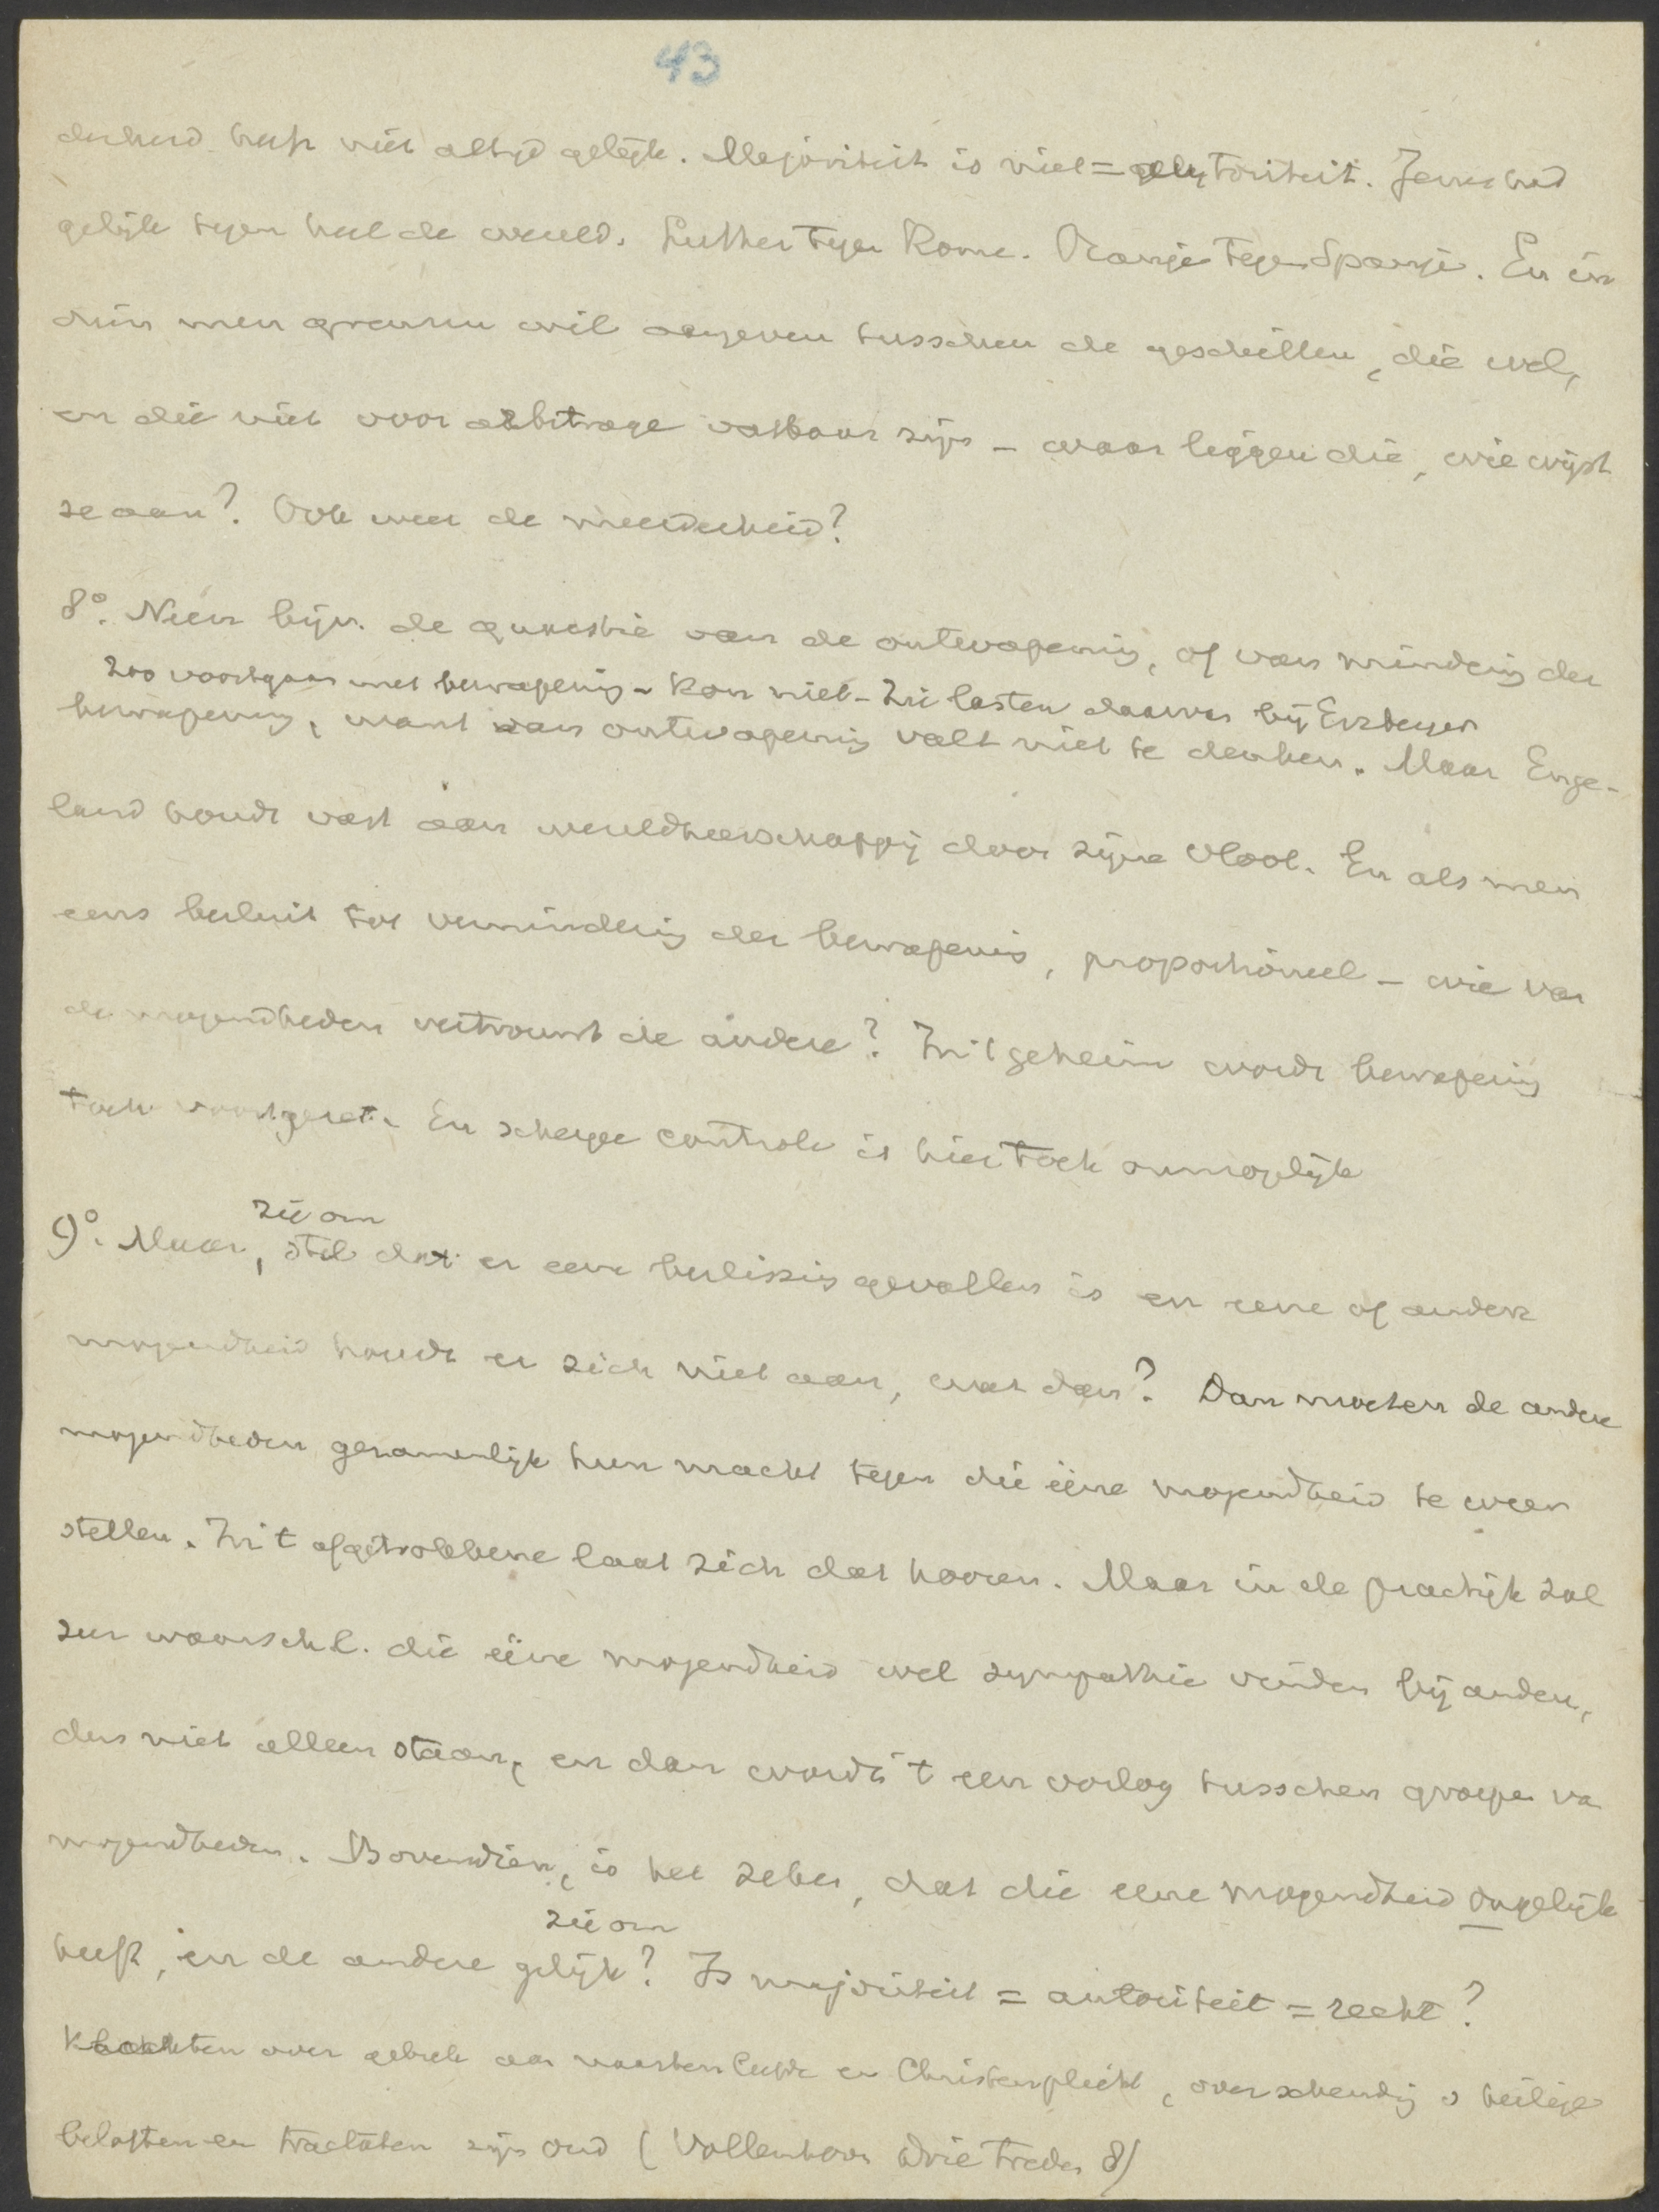 43
derheid heeft niet altijd gelijk. Majoriteit is niet = autoriteit. Jezus had
gelijk tegen heel de wereld. Luther tegen Rome. Oranje tegen Spanje. En in
dien men grenzen wil aangeven tusschen de geschillen, die wel,
en die niet voor arbitrage vatbaar zijn - waar liggen die, wie wijst
ze aan? Ook weer de meerderheid?
8°. Neem bijv. de quaestie van de ontwapening, of van mindering der
zoo voortgaan met bewapening - kan niet - zie lasten daarvan bij Erzberger
bewapening, want aan ontwapening valt niet te denken. Maar Enge-
land houdt vast aan wereldheerschappij door zijne vloot. En als men
eens besluit tot vermindering der bewapening, proportioneel - wie van
de mogendheden vertrouwt de andere? In 't geheim wordt bewapening
toch voortgezet. En scherpe controle is hier toch onmogelijk
zie om
9°. Maar, stel dat er eene beslissing gevallen is en eene of andere
mogendheid houdt er zich niet aan, wat dan? Dan moeten de andere
mogendheden gezamenlijk hun macht tegen die ééne mogendheid te weer
stellen. In 't afgetrokkene laat zich dat hooren. Maar in de practijk zal
zeer waarschl. die ééne mogendheid wel sympathie vinden bij andere,
dus niet alleen staan, en dan wordt 't een oorlog tusschen groepen va
mogendheden. Bovendien, is het zeker, dat die eene mogendheid ongelijk
zie om
heeft, en de andere gelijk? Is majoriteit = autoriteit = recht?
Klachten over gebrek aan naastenliefde en Christenplicht, over schending v heilige
beloften en tractaten zijn oud (Vollenhoven Drie treden 8)